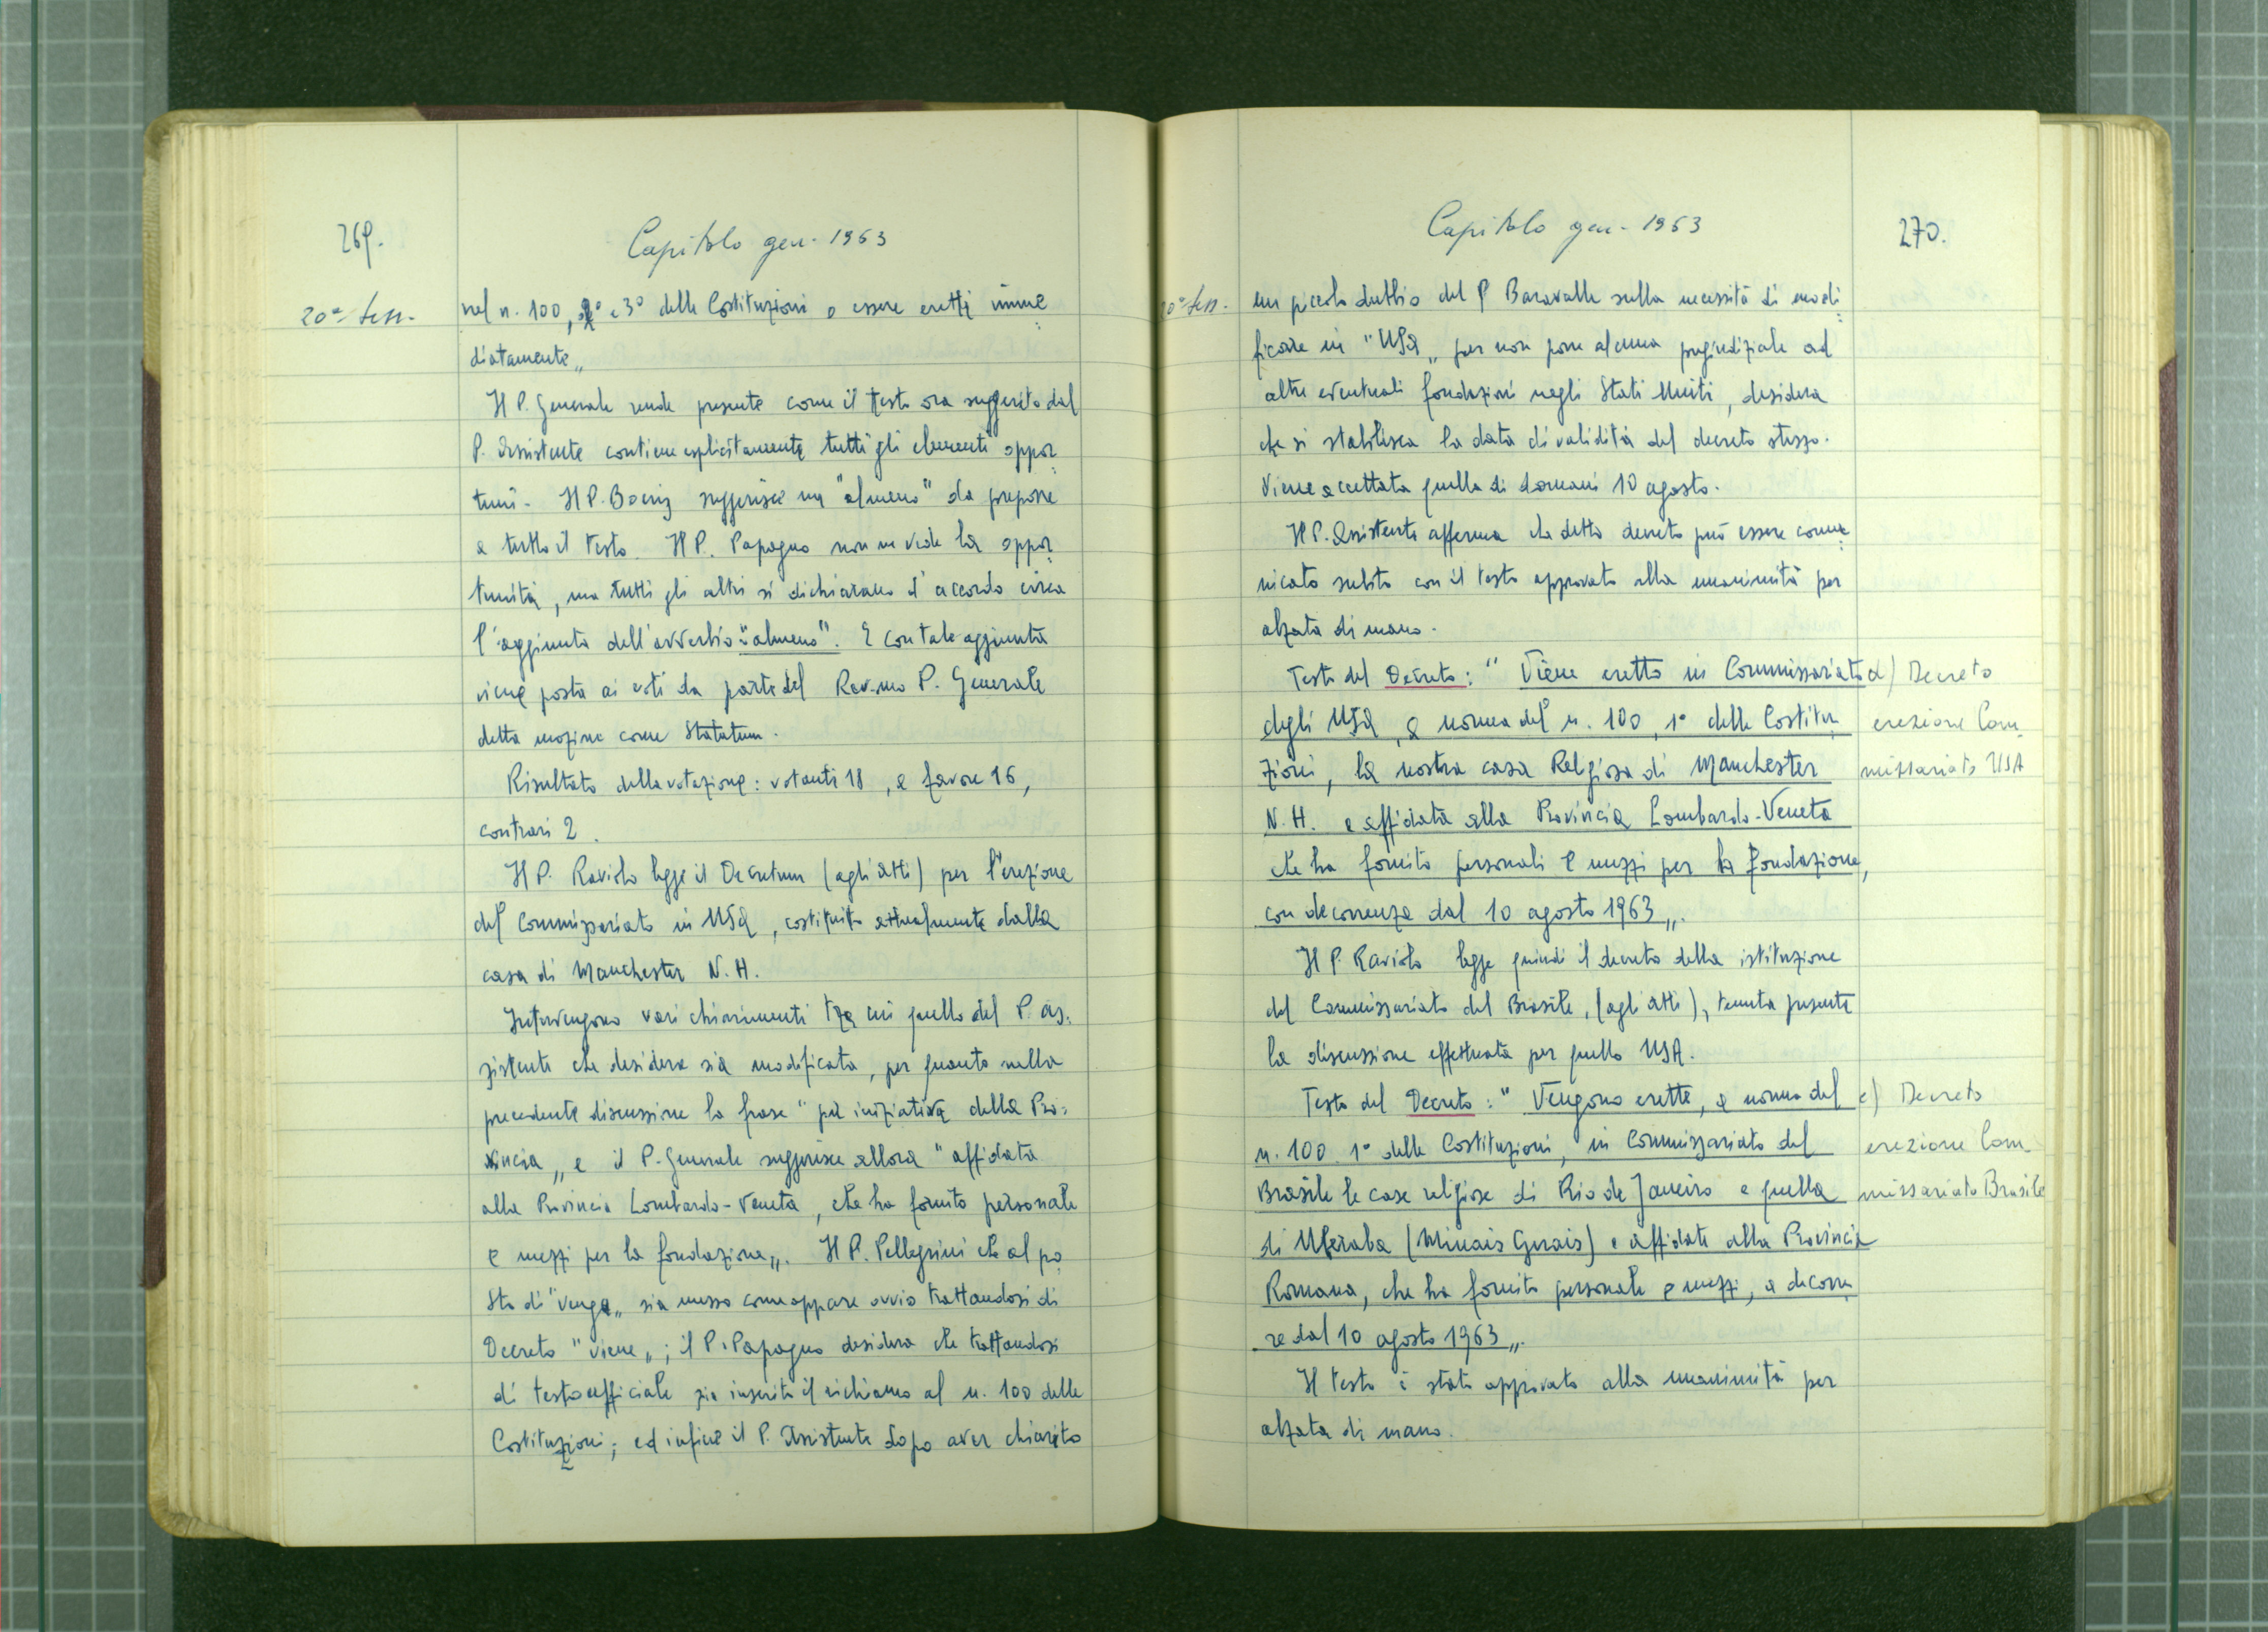 269.
Capitolo gen. 1963
20ª Sess.
nel n. 100, 2° e 3° delle Costituzioni o essere eretti imme
diatamente„
Il P. Generale rende presente come il testo ora suggerito dal
P. Assistente contiene esplicitamente tutti gli elementi oppor
tuni. Il P. Boeris suggerisce un "almeno" da preporre
a tutto il testo. Il P. Papagno non ne vede la oppor
tunità, ma tutti gli altri si dichiarano d'accordo circa
l'aggiunta dell'avverbio: "almeno". E con tale aggiunta
viene posta ai voti da parte del Rev.mo P. Generale
detta mozione come Statutum.
Risultato della votazione: votanti 18, a favore 16,
contrari 2.
Il P. Raviolo legge il Decretum (agli atti) per l'erezione
del Commissariato in USA, costituito attualmente dalla
casa di Manchester N. H.
Intervengono vari chiarimenti tra cui quello del P. As:
sistente che desidera sia modificata, per quanto nella
precedente discussione la frase "per iniziativa della Pro:
vincia„ e il P. Generale suggerisce allora "affidata
alla Provincia Lombardo-Veneta, che ha fornito personale
e mezzi per la fondazione„. Il P. Pellegrini che al po
sto di "venga„ sia messo come appare ovvio trattandosi di
Decreto "viene„; il P. Papagno desidera che trattandosi
di testo ufficiale sia inserito il richiamo al n. 100 delle
Costituzioni; ed infine il P. Assistente dopo aver chiarito
Capitolo gen. 1963
270.
20ª Sess.
un piccolo dubbio del P. Baravalle sulla necessità di modi
ficare in "USA„ per non porre alcuna pregiudiziale ad
altre eventuali fondazioni negli Stati Uniti, desidera
che si stabilisca la data di validità del decreto stesso.
Viene accettata quella di domani 10 agosto.
Il P. Assistente afferma che detto decreto può essere comu
nicato subito con il testo approvato alla unanimità per
alzata di mano.
Testo del Decreto: "Viene eretto in Commissariato
degli USA, a norma del n. 100, 1° delle Costitu
zioni, la nostra casa Religiosa di Manchester
N. H. e affidata alla Provincia Lombardo-Veneta
che ha fornito personali e mezzi per la fondazione,
con decorrenza dal 10 agosto 1963„.
d) Decreto
erezione Com
missariato USA
Il P. Raviolo legge quindi il decreto della istituzione
del Commissariato del Brasile, (agli atti), tenuta presente
la discussione effettuata per quello USA.
Testo del Decreto: "Vengono erette, a norma del
n. 100 1° delle Costituzioni, in Commissariato del
Brasile le case religiose di Rio de Janeiro e quella
di Uberaba (Minais Gerais) e affidate alla Provincia
Romana, che ha fornito personale e mezzi, a decorre
re dal 10 agosto 1963„.
e) Decreto
erezione Com
missariato Brasile
Il testo è stato approvato alla unanimità per
alzata di mano.